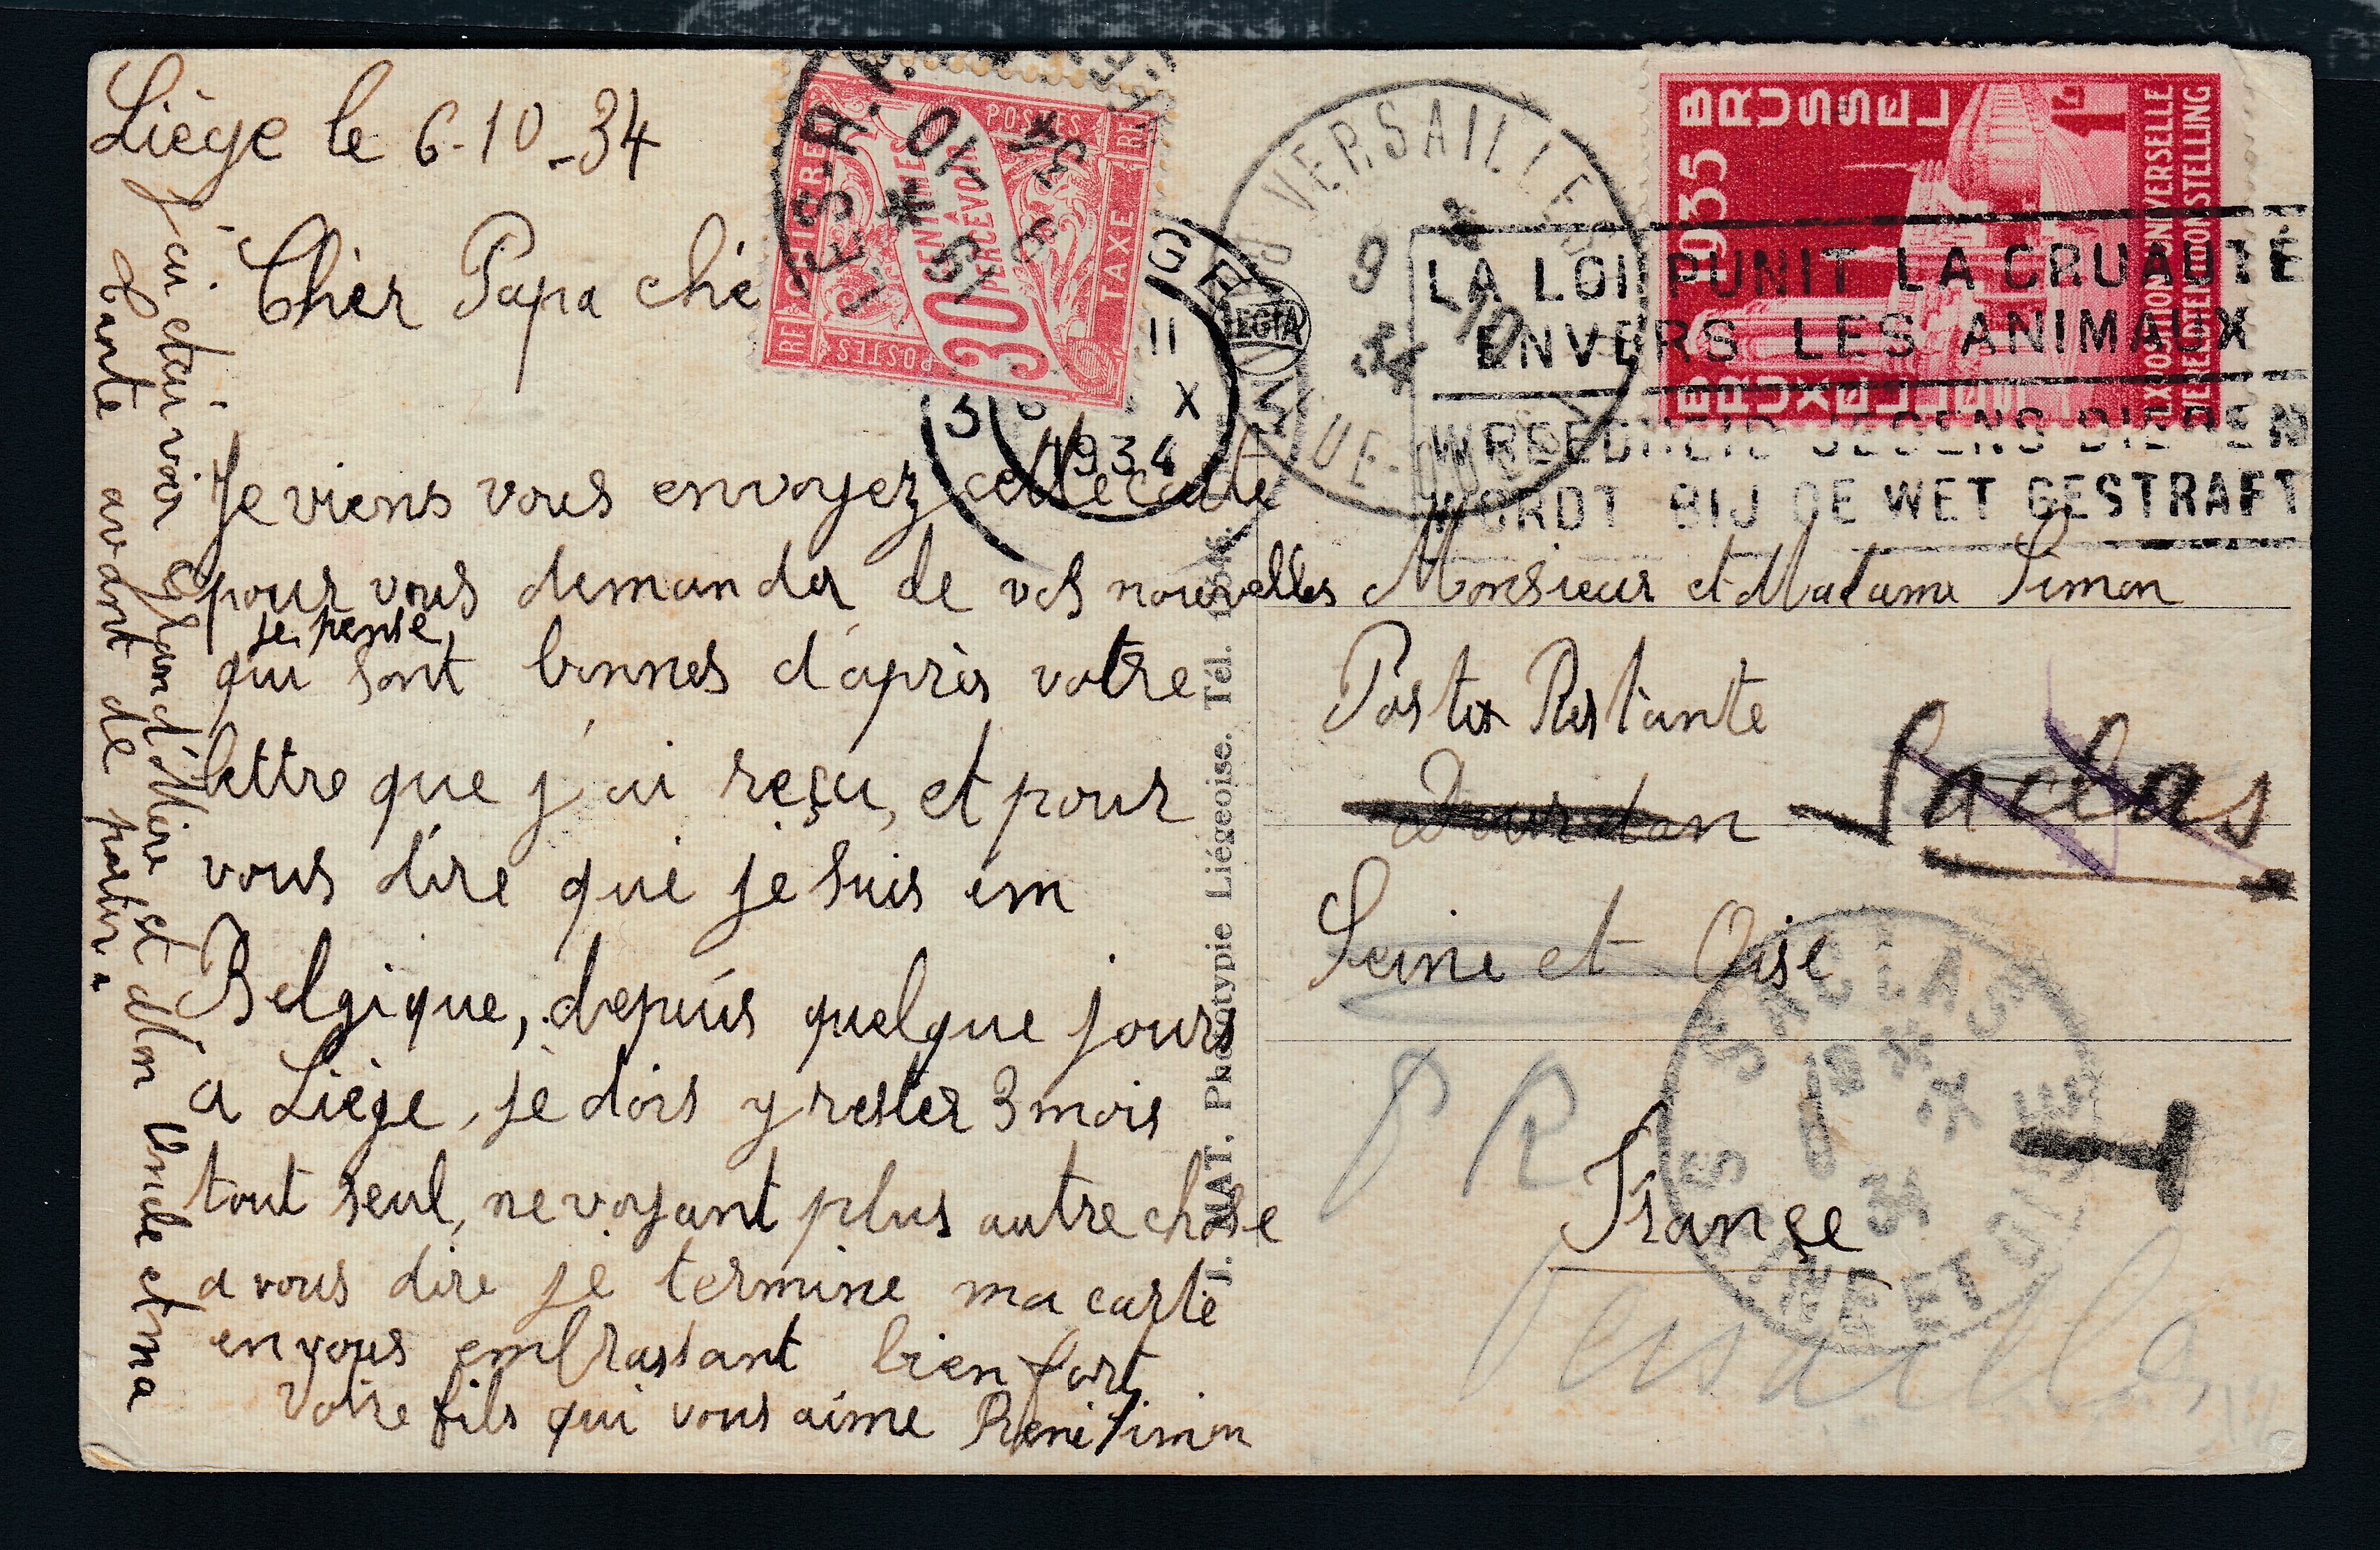 Liège le 6-10-34
Cher Papa ché
Je viens vous envoyez cette carte
pour vous demander de vos nouvelles
je pense
qui sont bonnes d'après votre
lettre que j'ai reçu, et pour
vous dire que je suis em
Belgique, depuis quelque jours
a Liège, je dois y rester 3 mois
tout seul, ne voyant plus autre chose
a vous dire je termine ma carte
en vous embrassant bien fort
Votre fils qui vous aime René Simon
j'ai etai voir Grand'Mère et Mon Oncle et ma
tante avant de partir.
J. MAT. Phototypie Liégeoise. Tél.
RF CHIFFRE POSTES RF TAXE POSTES
30 CENTIMES A PERCEVOIR
10 * 9 -10 34
GE
11 X
1934
3
LEGIA
VERSAILLES
9 -10
34
1935 BRUSSEL
BRUXELLES
1F
EXPOSITION UNIVERSELLE
WERELDTENTOONSTELLING
LA LOI PUNIT LA CRUAUTÉ
ENVERS LES ANIMAUX
WREEDHEID JEGENS DIEREN
WORDT BIJ DE WET GESTRAFT
Monsieur et Madame Simon
Poste Restante
Dourdan Saclas
Seine et Oise
P R
T
France
Versailles
SACLAS
SEINE ET OISE
34